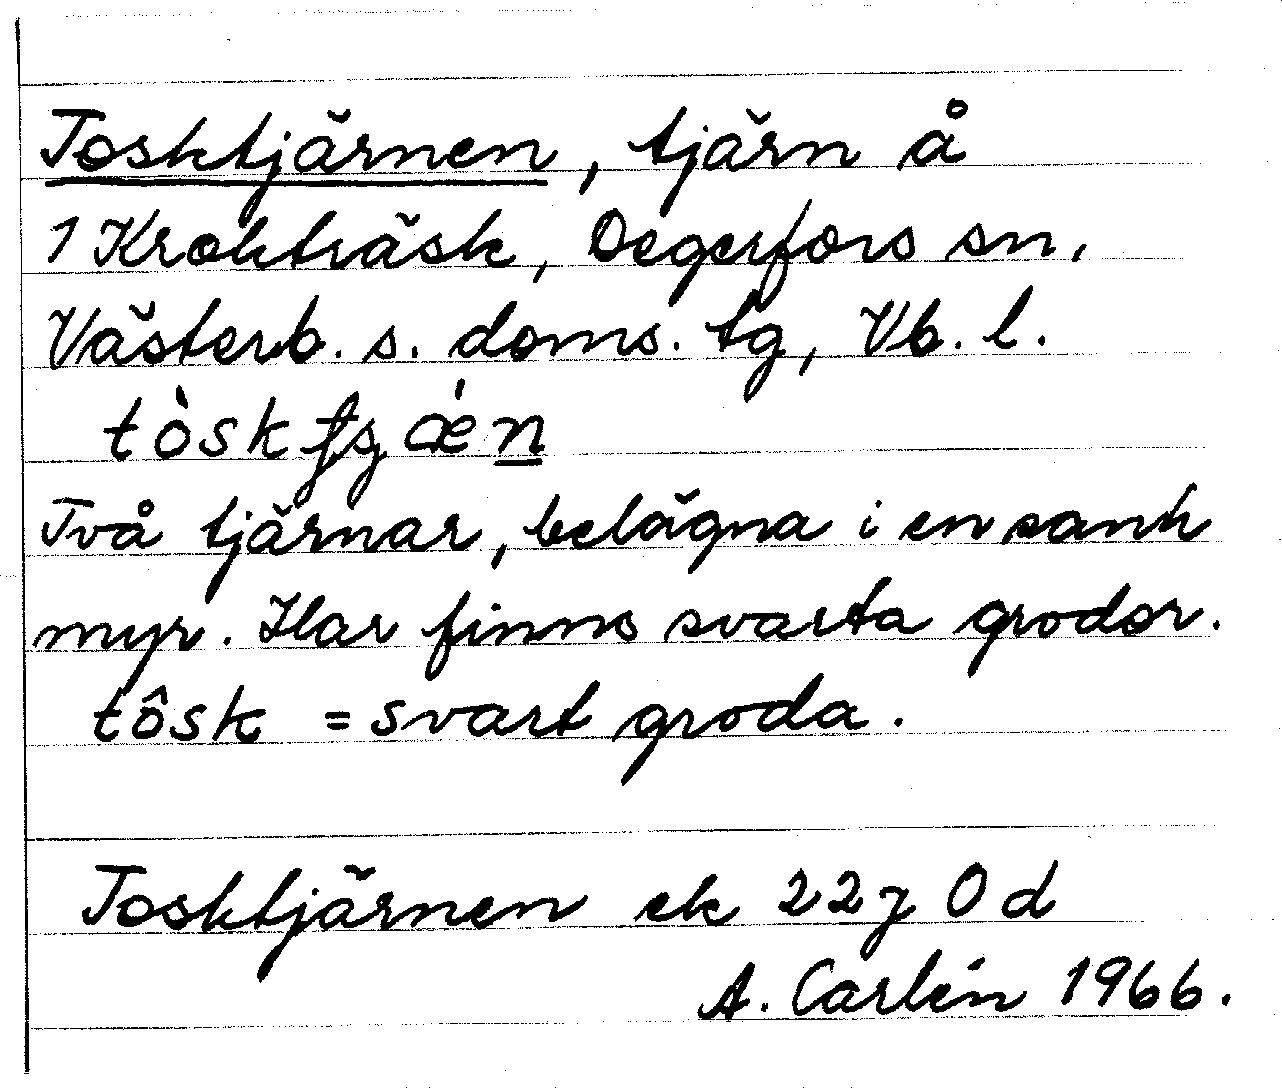 Tosktjärnen, tjärn å
1 Krokträsk, Degerfors sn,
Västerb. s. doms. tg, Vb. l.
Två tjärnar, belägna i en sank
myr. Här finns svarta grodor.
tôsk = svart groda.
Tosktjärnen ek 22J 0d
A. Carlén 1966.